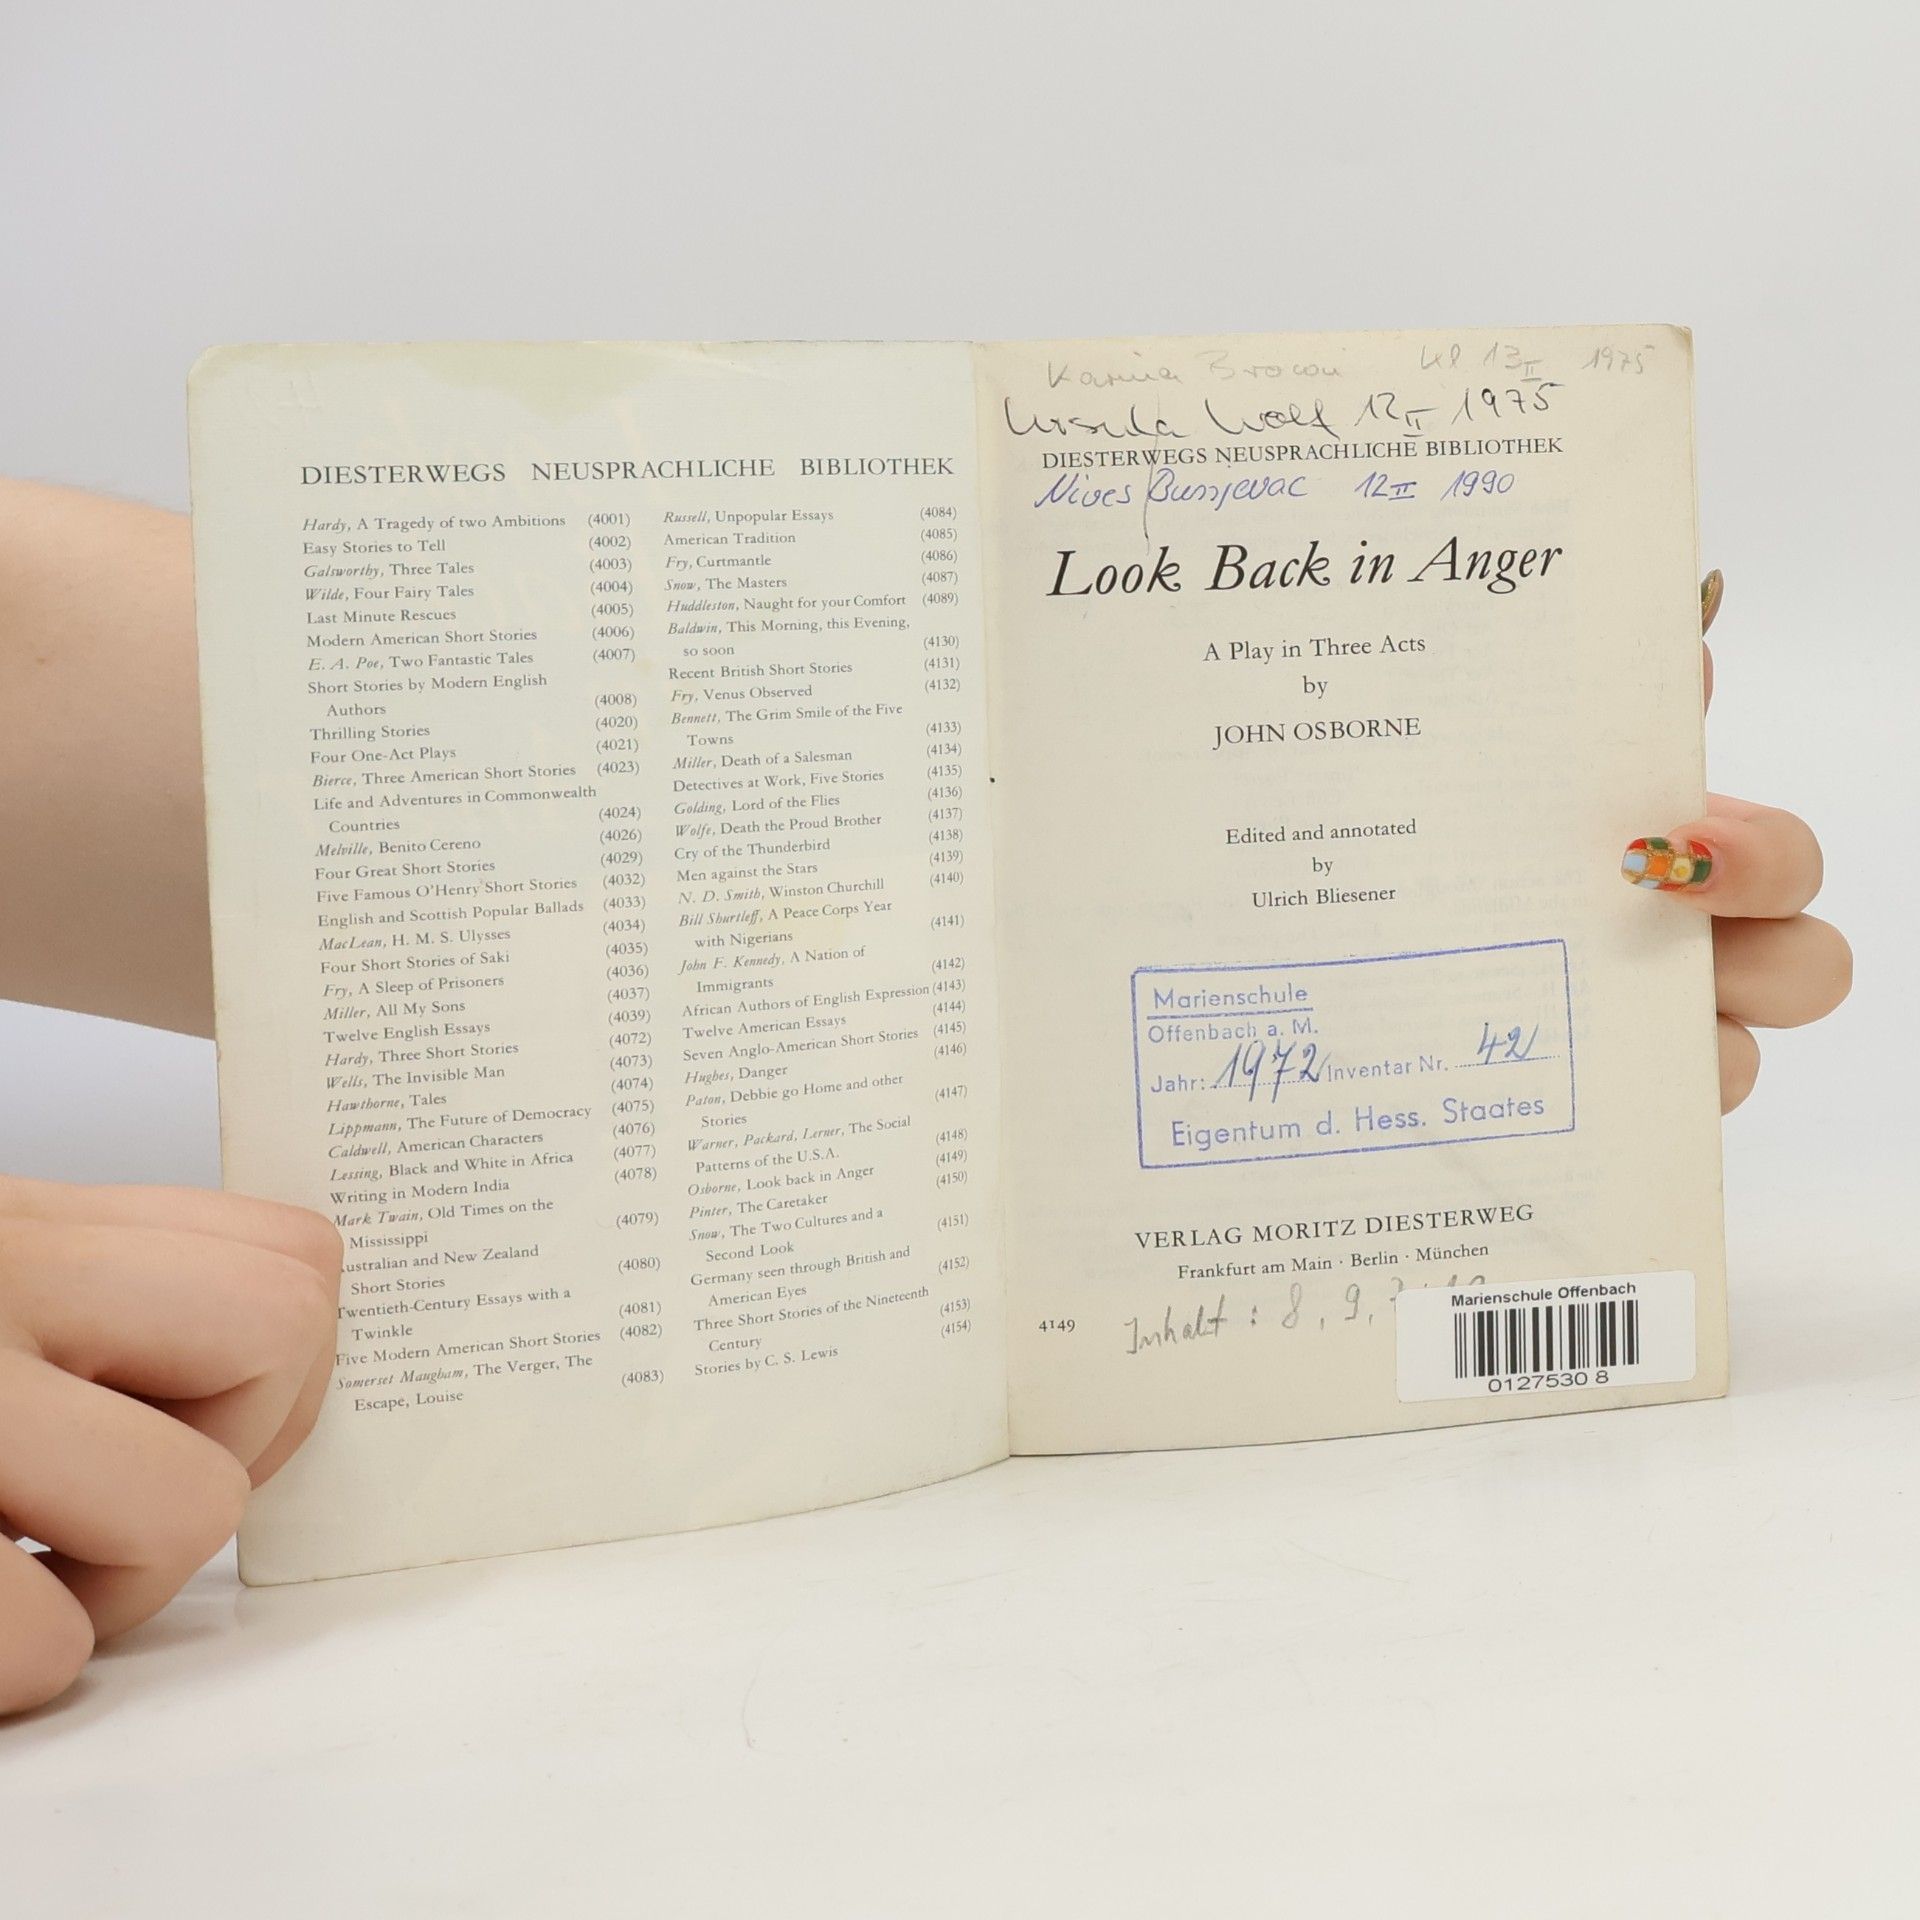 DIESTERWEGS NEUSPRACHLICHE BIBLIOTHEK
Hardy, A Tragedy of two Ambitions (4001)
Easy Stories to Tell (4002)
Galsworthy, Three Tales (4003)
Wilde, Four Fairy Tales (4004)
Last Minute Rescues (4005)
Modern American Short Stories (4006)
E. A. Poe, Two Fantastic Tales (4007)
Short Stories by Modern English
Authors (4008)
Thrilling Stories (4020)
Four One-Act Plays (4021)
Bierce, Three American Short Stories (4023)
Life and Adventures in Commonwealth
Countries (4024)
Melville, Benito Cereno (4026)
Four Great Short Stories (4029)
Five Famous O'Henry Short Stories (4032)
English and Scottish Popular Ballads (4033)
MacLean, H. M. S. Ulysses (4034)
Four Short Stories of Saki (4035)
Fry, A Sleep of Prisoners (4036)
Miller, All My Sons (4037)
Twelve English Essays (4039)
Hardy, Three Short Stories (4072)
Wells, The Invisible Man (4073)
Hawthorne, Tales (4074)
Lippmann, The Future of Democracy (4075)
Caldwell, American Characters (4076)
Lessing, Black and White in Africa (4077)
Writing in Modern India (4078)
Mark Twain, Old Times on the
Mississippi (4079)
ustralian and New Zealand
Short Stories (4080)
Twentieth-Century Essays with a
Twinkle (4081)
Five Modern American Short Stories (4082)
Somerset Maugham, The Verger, The
Escape, Louise (4083)
Russell, Unpopular Essays (4084)
American Tradition (4085)
Fry, Curtmantle (4086)
Snow, The Masters (4087)
Huddleston, Naught for your Comfort (4089)
Baldwin, This Morning, this Evening,
so soon (4130)
Recent British Short Stories (4131)
Fry, Venus Observed (4132)
Bennett, The Grim Smile of the Five
Towns (4133)
Miller, Death of a Salesman (4134)
Detectives at Work, Five Stories (4135)
Golding, Lord of the Flies (4136)
Wolfe, Death the Proud Brother (4137)
Cry of the Thunderbird (4138)
Men against the Stars (4139)
N. D. Smith, Winston Churchill (4140)
Bill Shurtleff, A Peace Corps Year
with Nigerians (4141)
John F. Kennedy, A Nation of
Immigrants (4142)
African Authors of English Expression (4143)
Twelve American Essays (4144)
Seven Anglo-American Short Stories (4145)
Hughes, Danger (4146)
Paton, Debbie go Home and other
Stories (4147)
Warner, Packard, Lerner, The Social
Patterns of the U.S.A. (4148)
Osborne, Look back in Anger (4149)
Pinter, The Caretaker (4150)
Snow, The Two Cultures and a
Second Look (4151)
Germany seen through British and
American Eyes (4152)
Three Short Stories of the Nineteenth
Century (4153)
Stories by C. S. Lewis (4154)
Karina Kl 13 II 1975
Ursula Wolf 12 II 1975
DIESTERWEGS NEUSPRACHLICHE BIBLIOTHEK
Nives Bunjevac 12 II 1990
Look Back in Anger
A Play in Three Acts
by
JOHN OSBORNE
Edited and annotated
by
Ulrich Bliesener
Marienschule
Offenbach a. M.
Jahr: 1972 Inventar Nr. 42
Eigentum d. Hess. Staates
VERLAG MORITZ DIESTERWEG
Frankfurt am Main · Berlin · München
4149
Inhalt: 8, 9,
Marienschule Offenbach
0127530 8